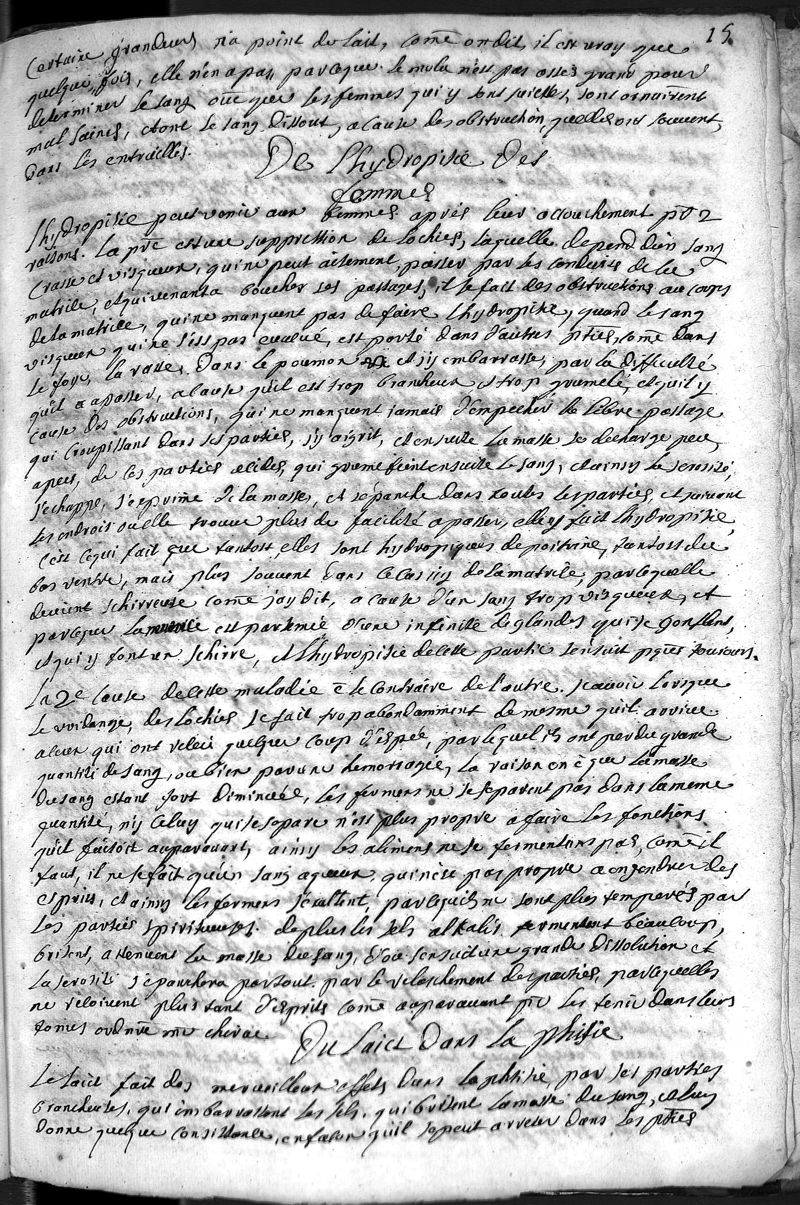 15
Certaine grandeurs n'a point de lait, come on dit, il est vray que
quelque fois, elle n'en a pas, parceque le mole n'est pas assés grand pour
determiner le sang que les femmes qui y sont suiettes, sont
mal saines, et ont le sang dissout, a cause des obstruction, quelles ont souvent,
dans les entrailles.
De l'hydropisie des
femmes
L'hydropisie peut venir aux femmes aprés leur accouchement pr 2
raisons. La pre est une suppression de lochies, laquelle depend d'un sang
crasse et visqueux, qui ne peut aisement passer par les conduits de la
matrice, et qui venant a boucher ses passages, il se fait des obstructions au corps
de la matrice, qui ne manquent pas de faire l'hydropisie, quand le sang
visqueux qui ne s'est pas evacué, est porté dans d'autres pties, come dans
le foye, la ratte, dans le poumon et s'y embarrasse, par la difficulté
qu'il a a passer, a cause qu'il est trop brancheux et trop grumelé, et qu'il y
cause des obstructions, qui ne manquent jamais d'empecher le libre passage
qui croupissant dans ses parties, s'y aigrit, et ensuite la masse se decharge peu
apres, de ces parties acides, qui grumelent ensuite le sang, et ainsy la serosité,
s'echappe, s'exprime de la masse, et s'epanche dans toutes les parties, et suivant
les endrois ou elle trouve plus de facilité a passer, elle y fait l'hydropisie,
c'est ce qui fait que tantost elles sont hydropiques de poitrine, tantost du
bas ventre, mais plus souvent dans ce cas icy de la matrice, parcequelle
devient schirreuse come j'ay dit, a cause d'un sang trop visqueux, et
parceque la matrice est parsemée d'une infinité de glandes qui se gonflent,
et qui y font un schirre, et l'hydropisie de cette partie s'ensuit toujours.
La 2e cause de cette maladie e le contraire de l'autre. scavoir lorsque
le vuidange, des lochies se fait trop abondamment de mesme qu'il arrive
a ceux qui ont receu quelque coup d'espée, par lequel ils ont perdu grande
quantité de sang, ou bien par une hemorragie, la raison en e que la masse
du sang estant fort diminuée, les fermens ne se separent pas dans la meme
quantité, n'y celuy qui se separe n'est plus propre a faire les fonctions
qu'il faisoit auparavant, ainsy les alimens ne se fermentans pas, come il
faut, il ne se fait qu'un sang aqueux, qui n'est pas propre a engendrer des
esprits, et ainsy les fermens s'exaltent, parcequils ne sont plus temperés par
les parties spiritueuses. de plus les sels alkalis fermentent beaucoup,
brisent, attenuent la masse du sang, d'ou s'ensuit une grande dissolution et
la serosité s'epanchera par tout. par le relaschement des parties, parcequelles
ne recoivent plus tant d'esprits come auparavant pr les tenir dans leurs
Du laict dans la phtisie
Le laict fait des merveilleux effets dans la phtisie, par ses parties
brancheuses, qui imbarrassent les sels, qui brisent la masse du sang, et luy
donne quelque consistance, en facon qu'il se peut arreter dans les pties